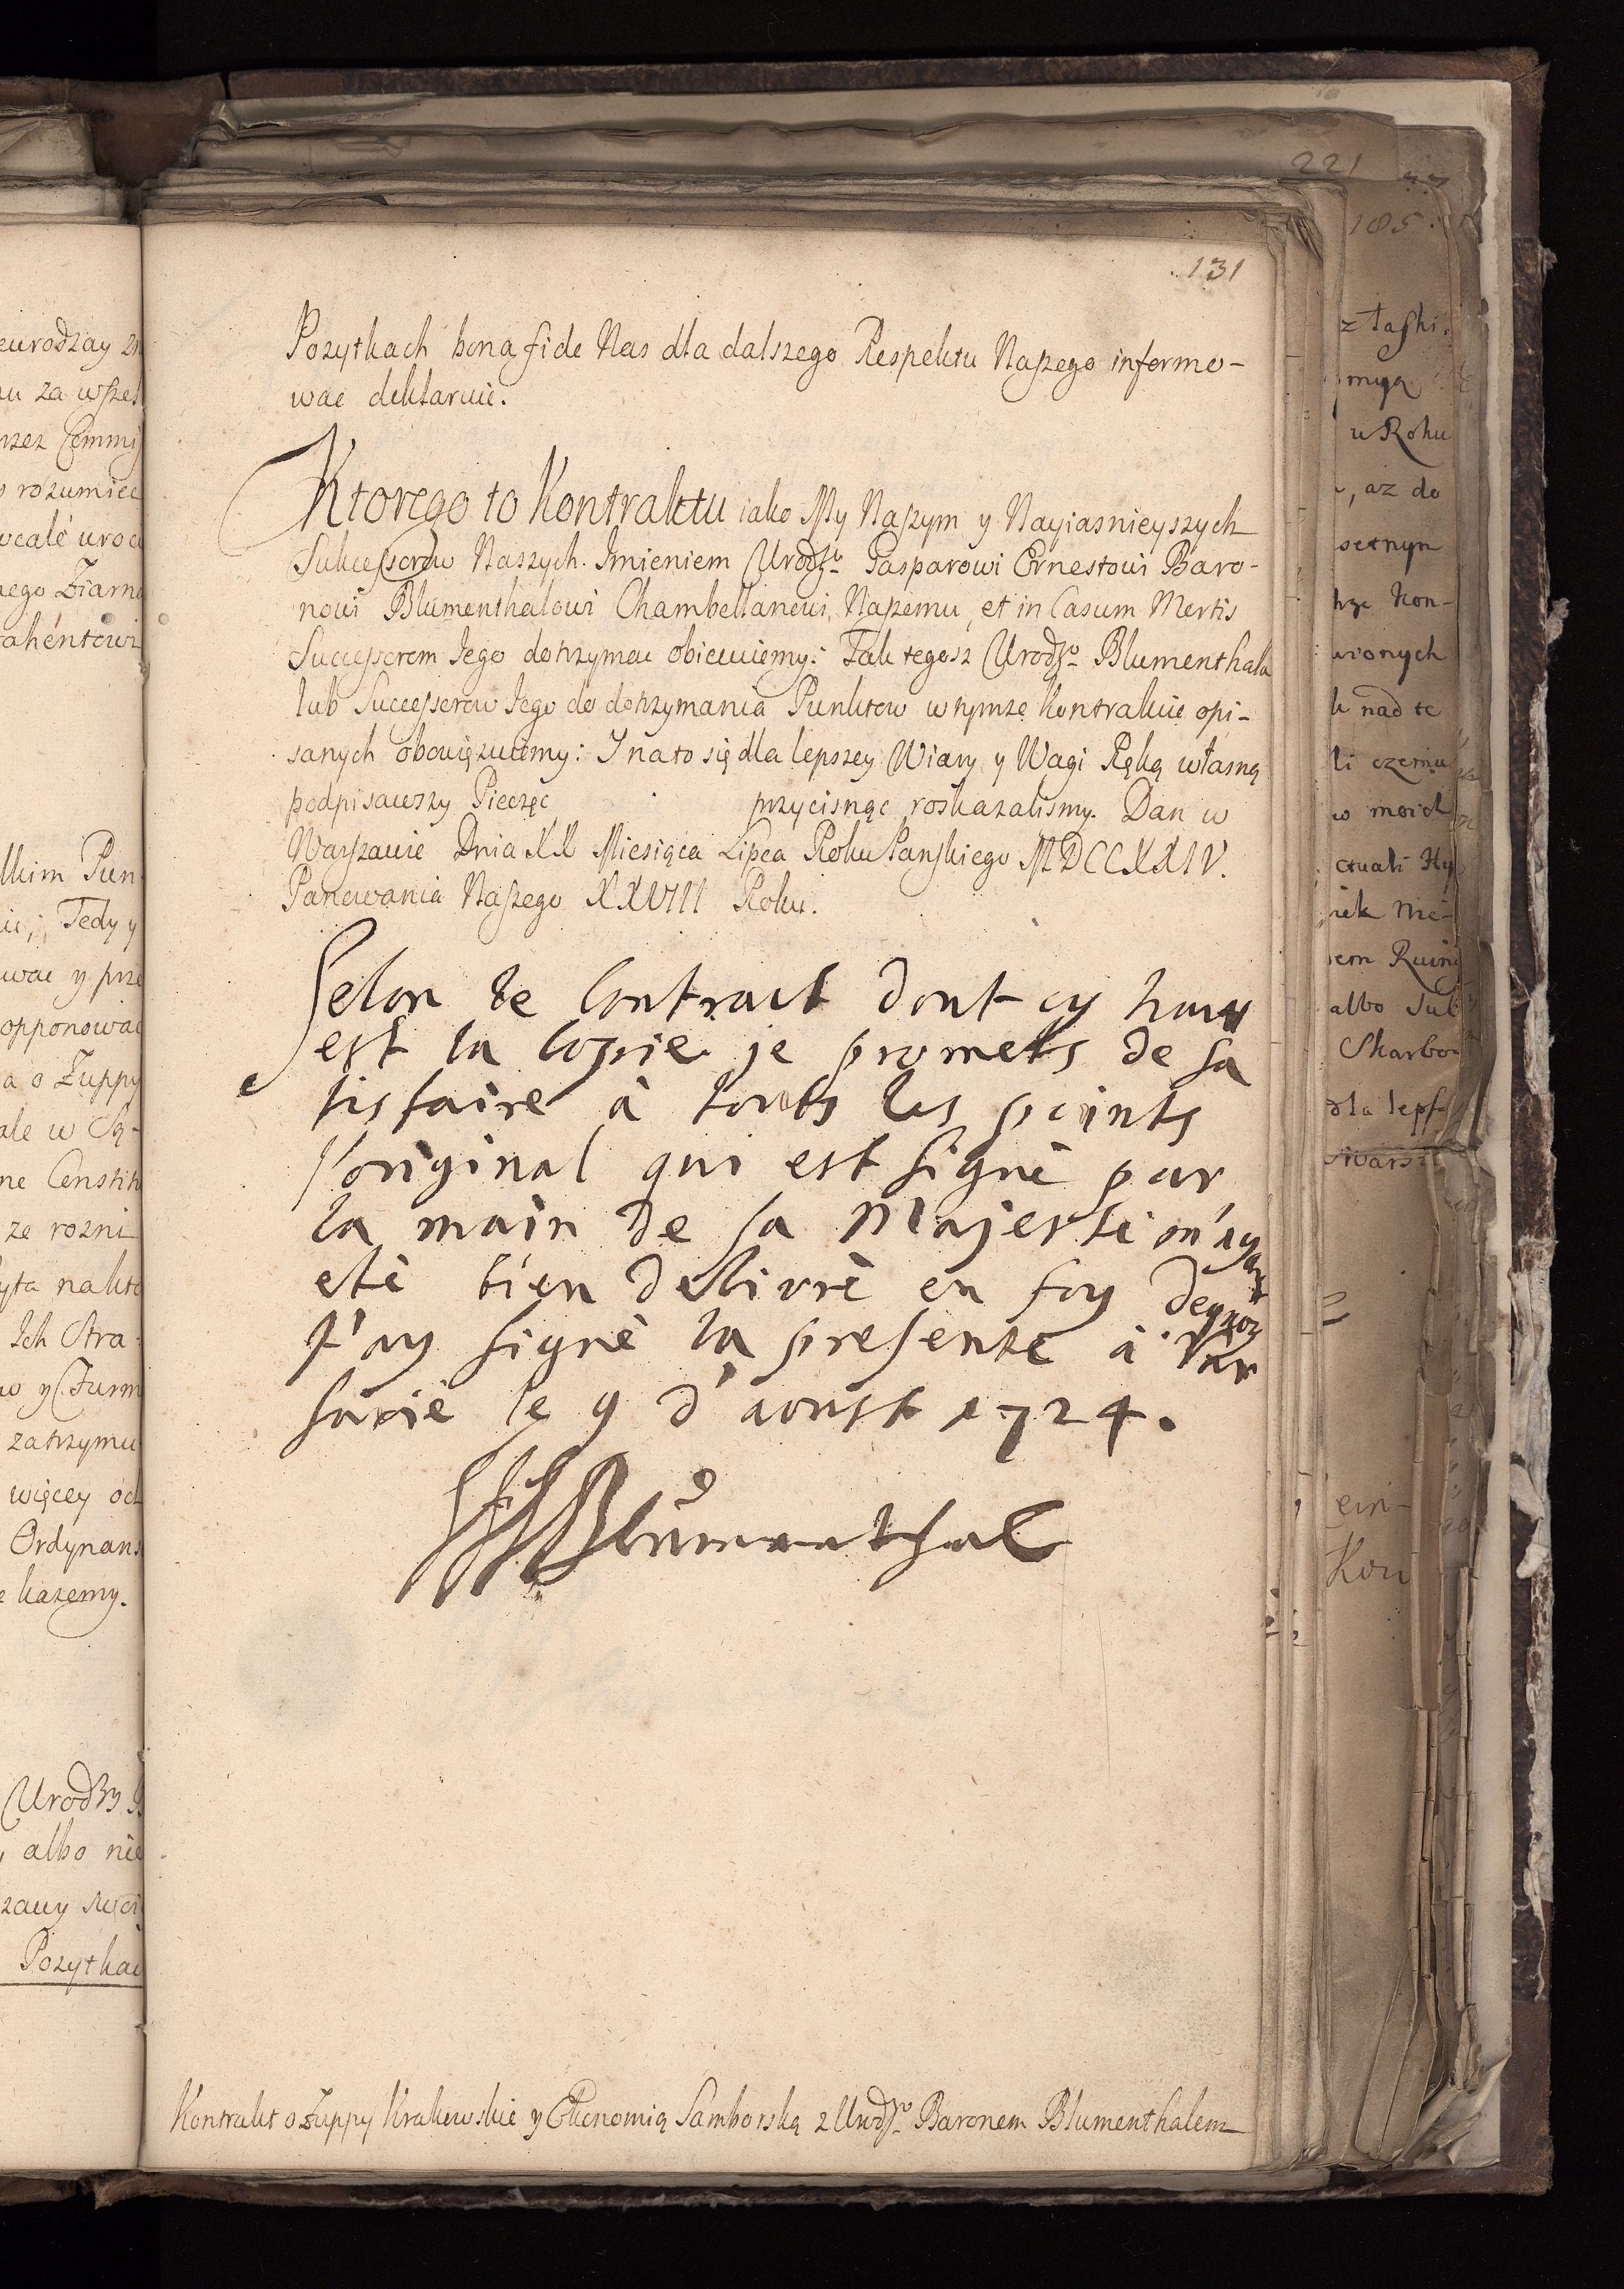 131
Pozytkach bona fide Nas dla dalszego Respektu Naszego informo-
wac deklaruie.
Ktorego to Kontraktu iako My Naszym y Nayiasnieyszych
Sukcessorow Naszych Imieniem Urodz° Gasparowi Ernestowi Baro-
nowi Blumenthalowi Chambellanowi Naszemu, et in Casum Mortis
Successorom Jego dotrzymac obiecuiemy: Tak tegosz Urodz° Blumenthala
lub Successorow Jego do dotrzymania Punktow w tymze Kontrakcie opi-
sanych obowięzuiemy: I na to się dla lepszey Wiary y Wagi Ręką własną
podpisawszy Pieczęc przycisnąc roskazalismy. Dan w
Warszawie Dnia XX Miesiąca Lipca Roku Panskiego MDCCXXIV.
Panowania Naszego XXVIII Roku.
Selon le Contract dont cy haut
est la copie je promets de sa
tisfaire à touts les points
l'original qui est signè par
la main de sa Majestè m'ayant
etè bien delivrè en foy dequoy
j'ay signè la presente à Var
savie le 9 d'aoust 1724.
Blumenthal
Kontrakt o Zuppy Krakowskie y Ekonomią Samborską z Urodz° Baronem Blumenthalem
221
185
eurodzay
za wszel
rozumiec
nego Ziarna
Tedy y
wac y prze
opponowac
a o Zuppy
ze rozni
Ich Stra
zatrzymu
więcey od
Ordynans
kazemy.
Urodzy
albo nie
Pozytkac
u Roku
az do
setnym
Kon-
wionych
nad te
li czemu
w moich
albo Suk
Skarbo
dla lepsz